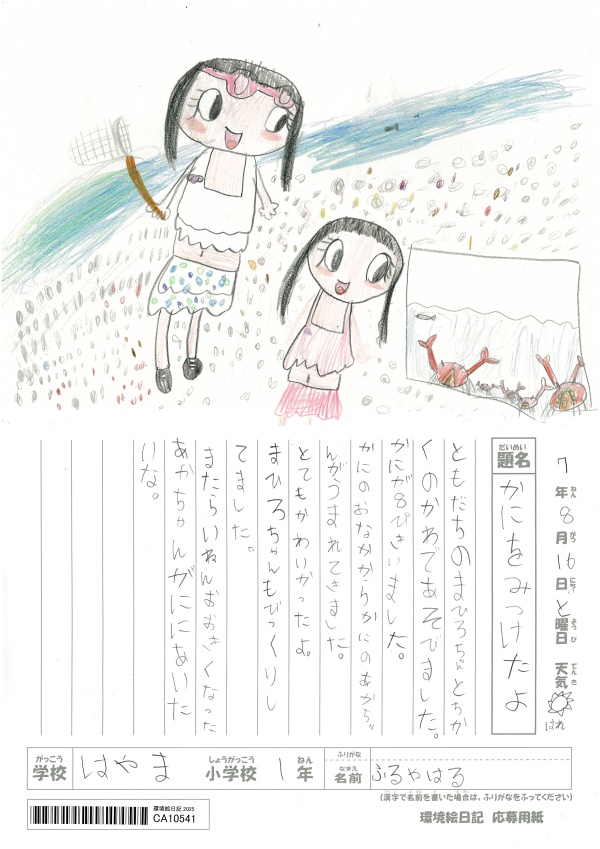 7年ねん8月がつ16日にちと曜日ようび 天気てんき はれ
題名だいめい かにをみつけたよ
ともだちのまひろちゃんとちか
くのかわであそびました。
かにが8ぴきいました。
かにのおなかからかにのあかちゃ
んがうまれてきました。
とてもかわいかったよ。
まひろちゃんもびっくりし
てました。
またらいねんおおきくなった
あかちゃんがににあいた
いな。
学校がっこう はやま 小学校しょうがっこう 1年ねん 名前なまえ ふりがな ふるやはる
(漢字で名前を書いた場合は、ふりがなをふってください)
環境絵日記 2025
CA10541
環境絵日記 応募用紙